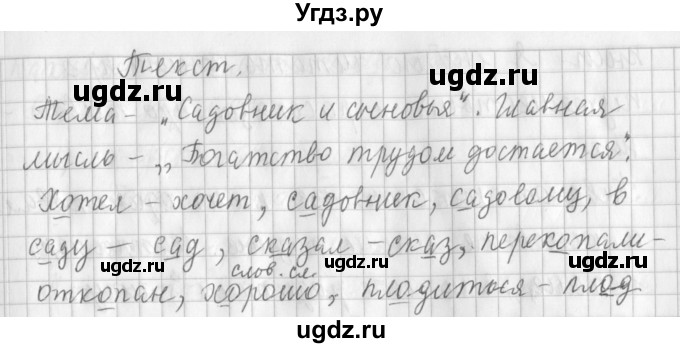 Угдз.ру
Текст.
Тема - „Садовник и сыновья". Главная
мысль - „Богатство трудом достается".
Хотел - хочет, садовник, садовому, в
саду - сад, сказал - сказ, перекопали -
слов. сл.
откопан, хорошо, плодиться - плод
ugdz.ru
ugdz.ru
ugdz.ru
ugdz.ru
ugdz.ru
ugdz.ru
ugdz.ru
ugdz.ru